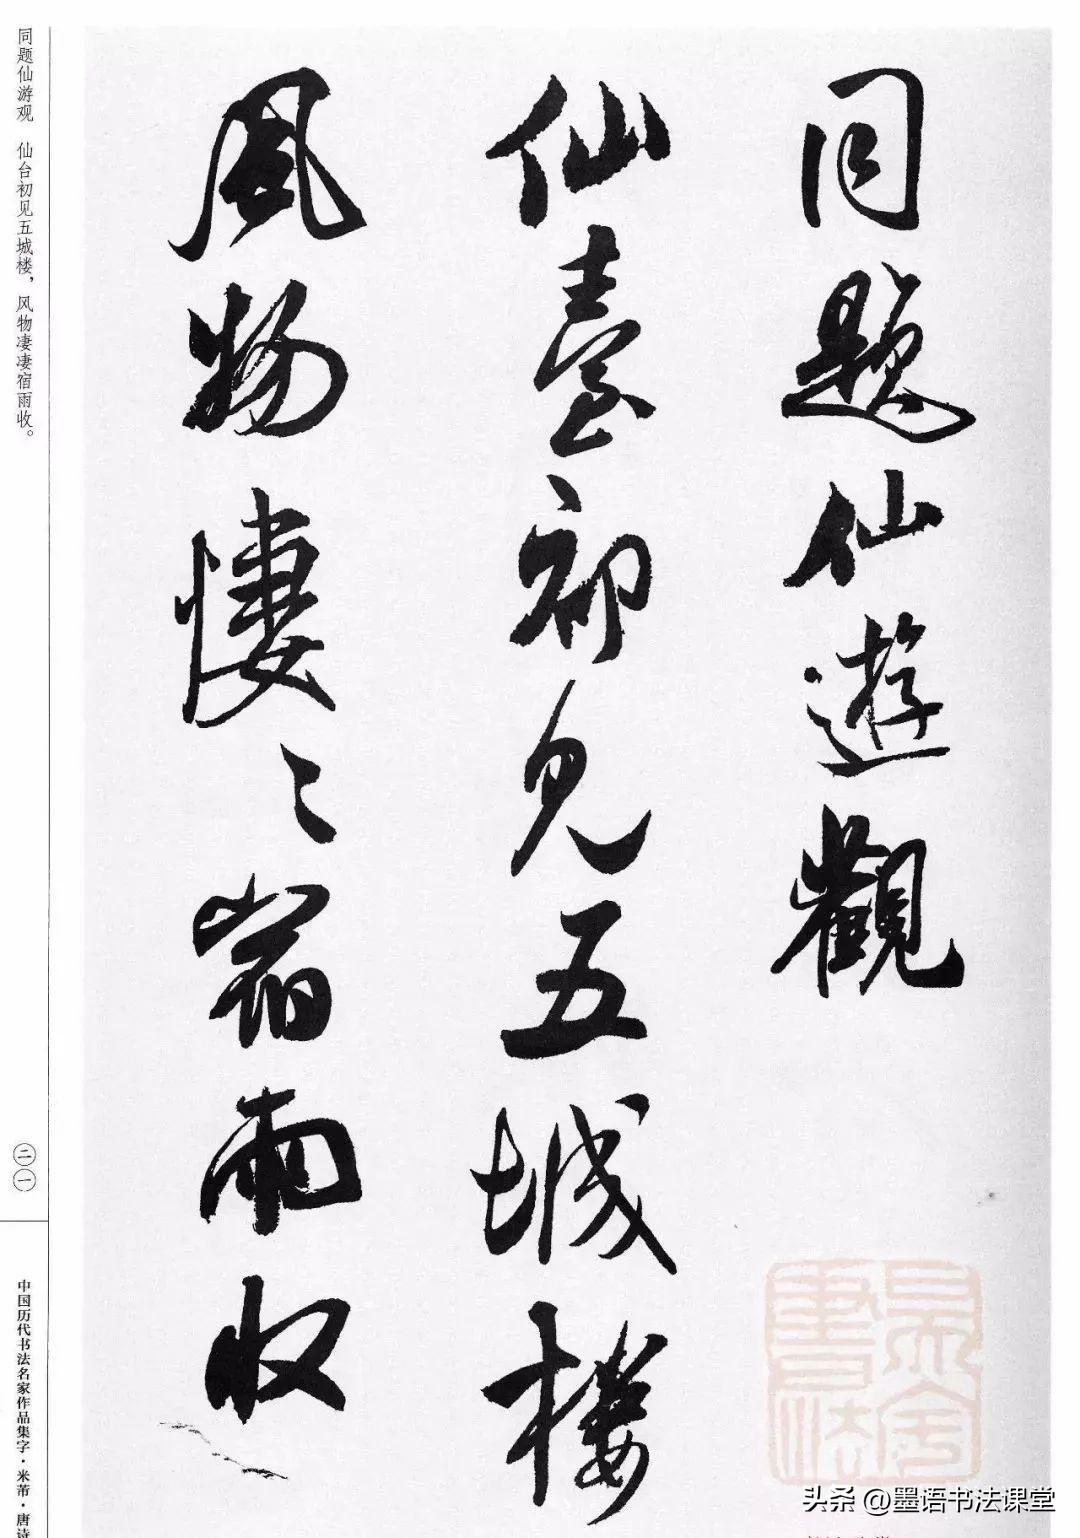 同题仙遊觀
仙臺初见五城楼
風物悽〻宿雨收
同题仙游观 仙台初见五城楼，风物凄凄宿雨收。
二一
中国历代书法名家作品集字·米芾·唐诗
头条 @墨语书法课堂